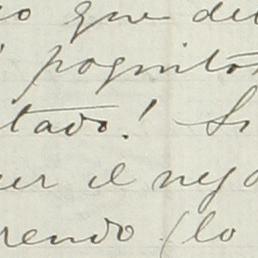 o que de
poquito
tado! Si
er el neg
rendo (lo